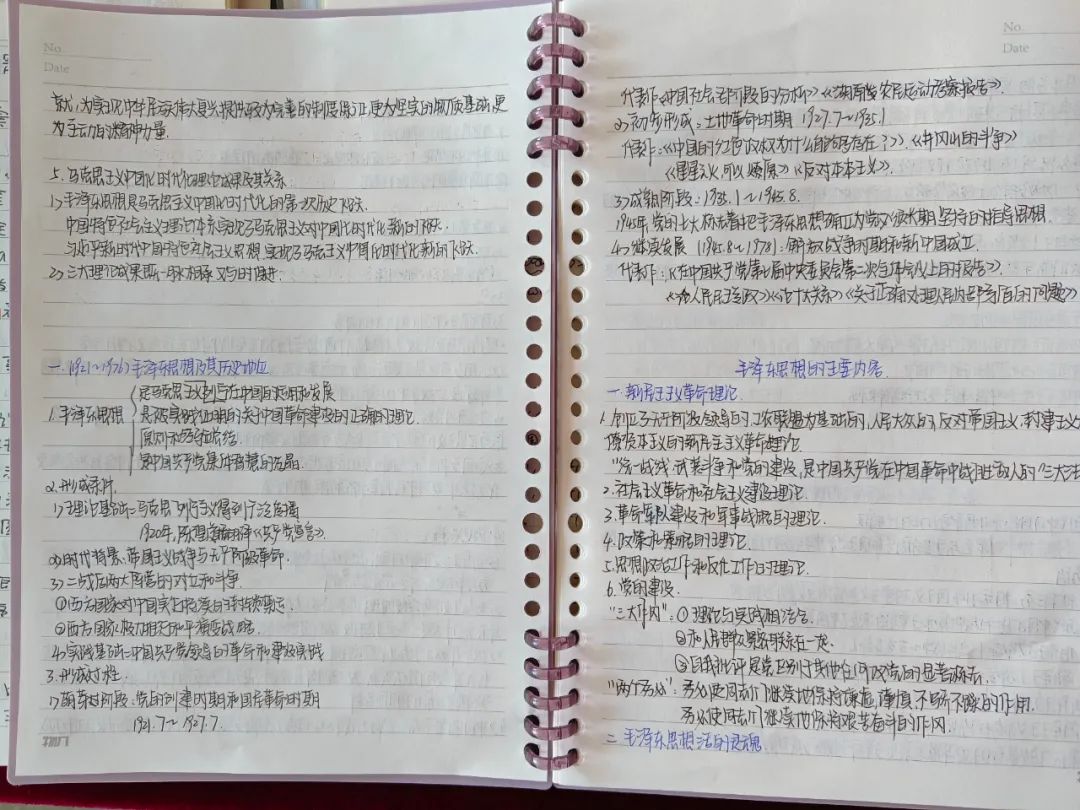 No.
Date
就，为实现中华民族伟大复兴提供更为完善的制度保证，更为坚实的物质基础，更
为主动的精神力量.
5. 马克思主义中国化时代化理论成果及其关系
1> 毛泽东思想是马克思主义中国化时代化的第一次历史飞跃.
中国特色社会主义理论体系实现了马克思主义中国化时代化新的飞跃.
习近平新时代中国特色社会主义思想，实现了马克思主义中国化时代化新的飞跃.
2> 三大理论成果是一脉相承又与时俱进.
一.(1921~1976)毛泽东思想及其历史地位
是马克思主义列宁在中国的运用和发展
1. 毛泽东思想
是被实践证明的关于中国革命建设的正确的理论.
原则和经验总结
是中国共产党集体智慧的结晶.
2. 形成条件.
1> 理论基础：马克思列宁主义得到广泛传播
1920年，陈望道翻译《共产党宣言》.
2> 时代背景：帝国主义战争与无产阶级革命.
3> 二战后两大阵营的对立和斗争.
①西方国家对中国实行
②西方国家极力推行和平演变战略.
4> 实践基础：中国共产党领导的革命和建设实践
3. 形成过程.
1> 萌芽时阶段：党的创建时期和国民革命时期
1921.7~1927.7.
No.
Date
代表作：《中国社会各阶级的分析》《湖南农民运动考察报告》.
2> 初步形成：土地革命时期 1927.7~1935.1
代表作：《中国的红色政权为什么能够存在？》、《井冈山的斗争》
《星星之火，可以燎原》《反对本本主义》.
3> 成熟阶段：1935.1~1945.8.
1945年党的七大标志着把毛泽东思想确立为党必须长期坚持的指导思想.
4> 继续发展 (1945.8~1976)：解放战争时期和新中国成立.
代表作：《在中国共产党第七届中央委员会第二次全体会议上的报告》.
《论人民民主专政》《论十大关系》《关于正确处理人民内部矛盾的问题》
毛泽东思想的主要内容
一.新民主主义革命理论
1. 创立了无产阶级领导的，工农联盟为基础的，人民大众的，反对帝国主义，封建主义
官僚资本主义的新民主主义革命理论.
"统一战线，武装斗争和党的建设，是中国共产党在中国革命中战胜敌人的"三大法
2. 社会主义革命和社会主义建设理论.
3. 革命军队建设和军事战略的理论.
4. 政策和策略的理论.
5. 思想政治工作和文化工作的理论.
6. 党的建设.
"三大作风"：①理论与实践相结合.
②和人民群众紧密联系在一起.
③自我批评是党区别于其他任何政党的显著标志.
"两个务必"：务必使同志们继续地保持谦虚，谨慎，不骄不躁的作用.
务必使同志们继续地保持艰苦奋斗的作风.
二 毛泽东思想活的灵魂